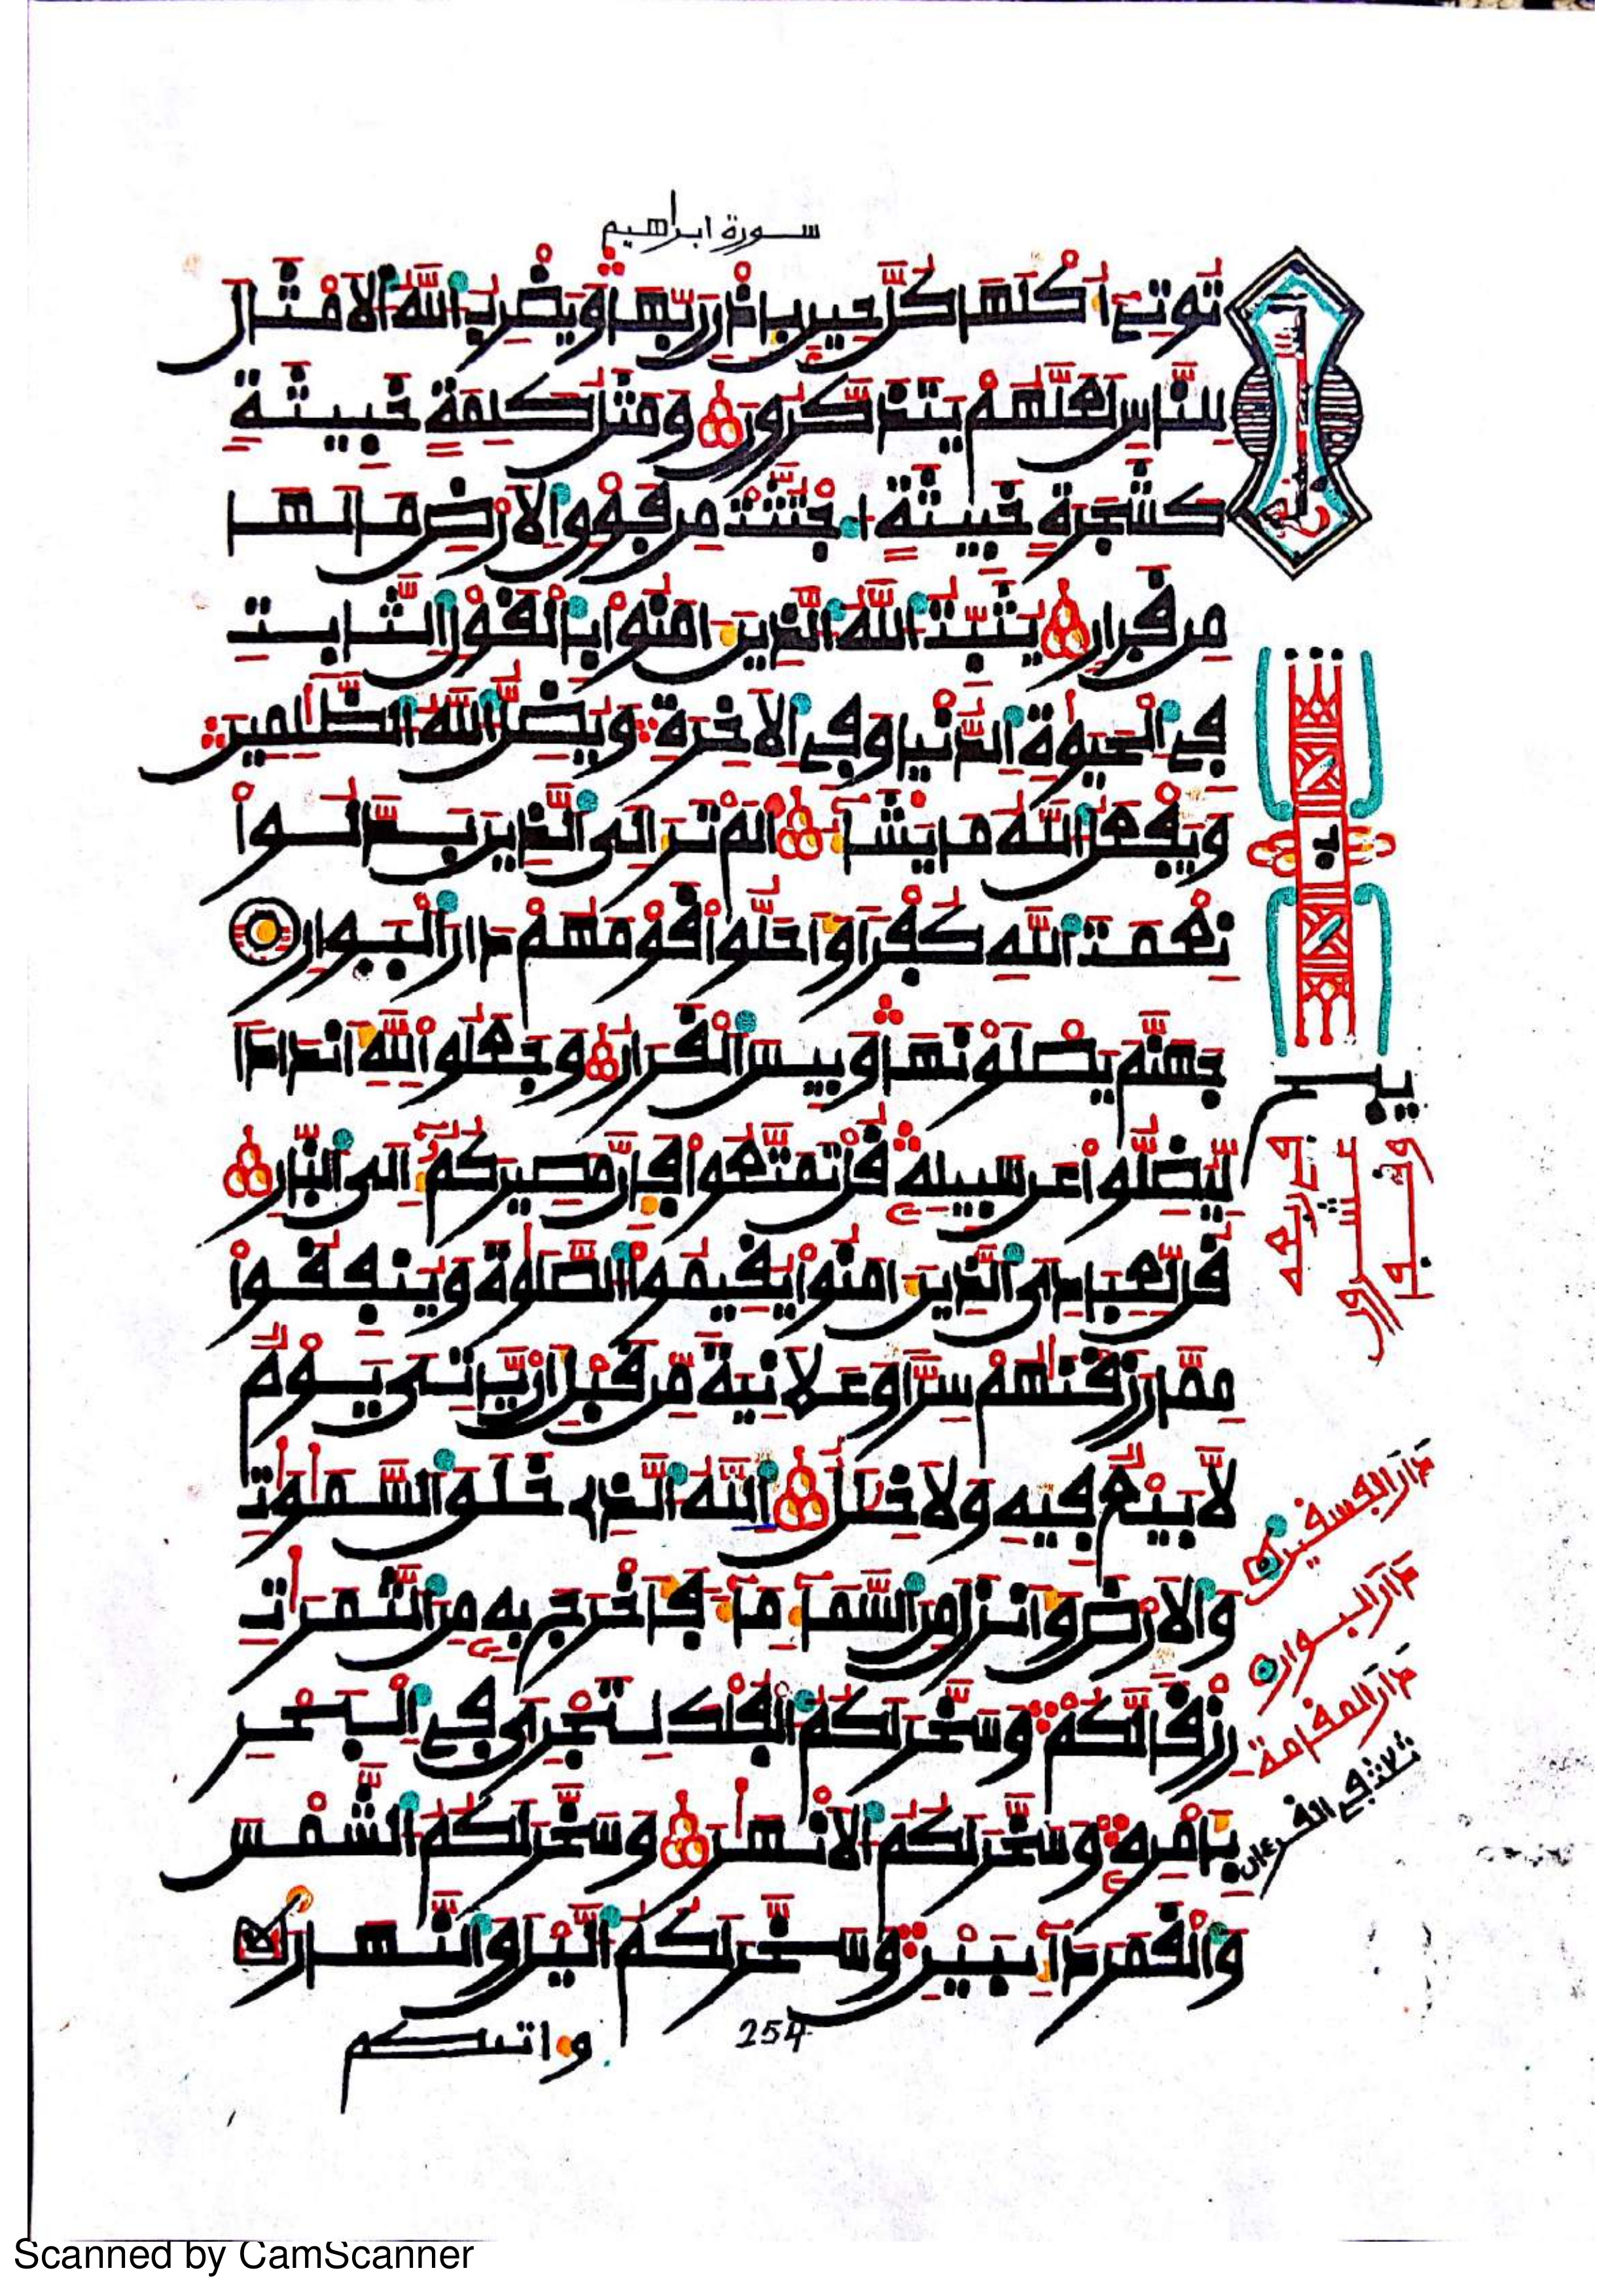 سورة ابراهيم
توتي أكلها كل حين باذن ربها ويضرب الله الامثال
للناس لعلهم يتذكرون ومثل كلمة خبيثة
كشجرة خبيثة اجتثت من فوق الارض ما لها
من قرار يثبت الله الذين امنوا بالقول الثابت
في الحيوة الدنيا وفي الاخرة ويضل الله الظلمين
ويفعل الله ما يشاء الم تر الى الذين بدلوا
نعمت الله كفرا واحلوا قومهم دار البوار
جهنم يصلونها وبيس القرار وجعلوا لله اندادا
ليضلوا عن سبيله قل تمتعوا فان مصيركم الى النار
قل لعبادي الذين امنوا يقيموا الصلوة وينفقوا
مما رزقنهم سرا وعلانية من قبل ان ياتي يوم
لا بيع فيه ولا خلل الله الذي خلق السموت
والارض وانزل من السماء ماء فاخرج به من الثمرت
رزقا لكم وسخر لكم الفلك لتجري في البحر
بامره وسخر لكم الانهر وسخر لكم الشمس
والقمر دايبين وسخر لكم اليل والنهار
واتيكم
254
بيس
دار الفسقين
دار البوار
دار المقامة
ثلاث في القرءان
Scanned by CamScanner